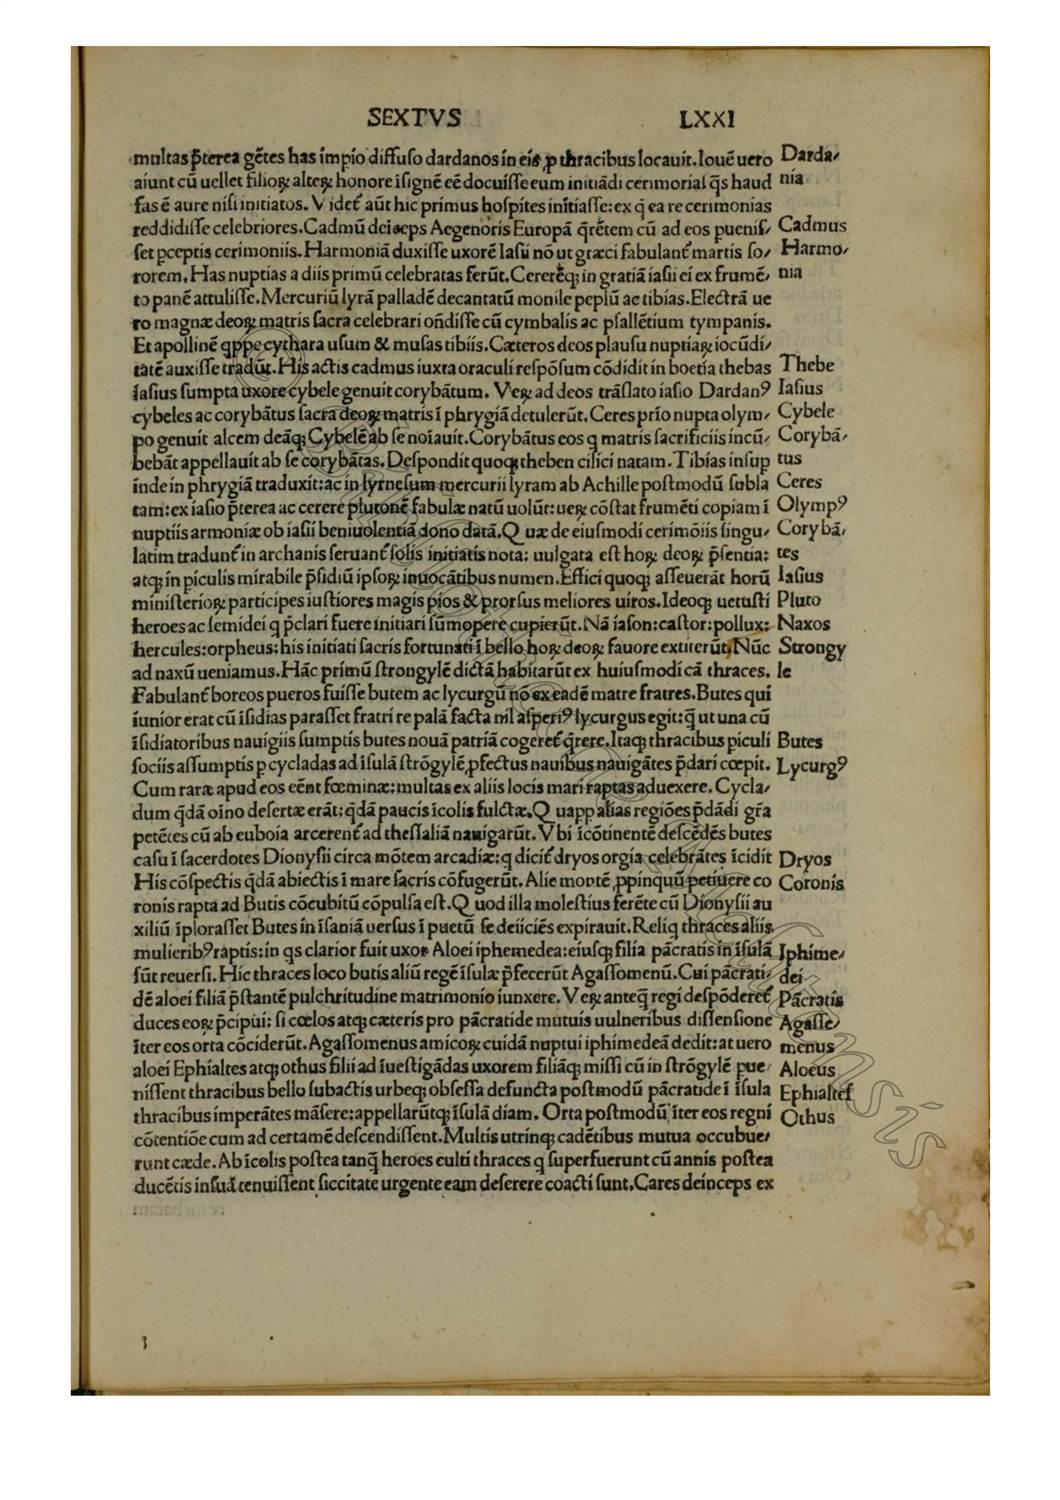 SEXTVS LXXI
multas p̄terea gētes has impio diffuso dardanos in eis ꝓ thracibus locauit. Iouē uero
aiunt cū uellet filioꝝ alteꝝ honore īsignē eē docuisse eum initiādi cerimorial q̄s haud
fas ē aure nisi initiatos. Videt᷑ aūt hic primus hospites initiasse: ex q̄ ea re cerimonias
reddidisse celebriores. Cadmū deiceps Aegenoris Europā q̄rētem cū ad eos puenis/
set pceptis cerimoniis. Harmoniā duxisse uxorē Iasii nō ut græci fabulant᷑ martis so/
rorem. Has nuptias a diis primū celebratas ferūt. Cererēqꝫ in gratiā iasii ei ex frumē/
to panē attulisse. Mercuriū lyrā palladē decantatū monile peplū ac tibias. Electrā ue
ro magnæ deoꝝ matris sacra celebrari oñdisse cū cymbalis ac psallētium tympanis.
Et apollinē qppe cythara usum & musas tibiis. Cæteros deos plausu nuptiaꝝ iocūdi/
tatē auxisse tradūt. His actis cadmus iuxta oraculi respōsum cōdidit in boetia thebas
Iasius sumpta uxore cybele genuit corybātum. Veꝝ ad deos trāslato iasio Dardanꝰ
cybeles ac corybātus sacra deoꝝ matris ī phrygiā detulerūt. Ceres prīo nupta olym/
po genuit alcem deāqꝫ Cybelē ab se noīauit. Corybātus eos q matris sacrificiis incū/
bebāt appellauit ab se corybātas. Despondit quoqꝫ theben cilici natam. Tibias insup
inde in phrygiā traduxit: ac in lyrnesum mercurii lyram ab Achille postmodū subla
tam: ex iasio p̄terea ac cerere plutonē fabulæ natū uolūt: ueꝝ cōstat frumēti copiam ī
nuptiis armoniæ ob iasii beniuolentiā dono datā. Quæ de eiusmodi cerimōiis singu/
latim tradunt᷑ in archanis seruant᷑ solis initiatis nota: uulgata est hoꝝ deoꝝ p̄sentia:
atqꝫ in piculis mirabile p̄sidiū ipsoꝝ inuocātibus numen. Effici quoqꝫ asseuerāt horū
ministerioꝝ participes iustiores magis pios & prorsus meliores uiros. Ideoqꝫ uetusti
heroes ac semidei q p̄clari fuere initiari sūmopere cupierūt. Nā iason: castor: pollux:
hercules: orpheus: his initiati sacris fortunati ī bello hoꝝ deoꝝ fauore extiterūt. Nūc
ad naxū ueniamus. Hāc primū strongylē dictā habitarūt ex huiusmodi cā thraces.
Fabulant᷑ boreos pueros fuisse butem ac lycurgū nō ex eadē matre fratres. Butes qui
iunior erat cū īsidias parasset fratri re palā facta nil asperiꝰ lycurgus egit: q̄ ut una cū
īsidiatoribus nauigiis sumptis butes nouā patriā cogeret᷑ q̄rere. Itaqꝫ thracibus piculi
sociis assumptis p cycladas ad īsulā strōgylē ꝓfectus nauibus nauigātes p̄dari cœpit.
Cum raræ apud eos eēnt fœminæ: multas ex aliis locis mari raptas aduexere. Cycla/
dum q̄dā oīno desertæ erāt: q̄dā paucis īcolis fultæ. Qua pp alias regiōes p̄dādi gr̄a
petētes cū ab euboia arcerent᷑ ad thessaliā nauigarūt. Vbi īcōtinentē descēdēs butes
casu ī sacerdotes Dionysii circa mōtem arcadiæ: q dicit᷑ dryos orgia celebrātes īcidit
His cōspectis q̄dā abiectis ī mare sacris cōfugerūt. Alie montē ꝓpinquū petiuere co
ronis rapta ad Butis cōcubitū cōpulsa est. Quod illa molestius ferēte cū Dionysii au
xiliū īplorasset Butes in īsaniā uersus ī puetū se deiiciēs expirauit. Reliq thraces aliis
mulieribꝰ raptis: in qs clarior fuit uxor Aloei iphemedea: eiusqꝫ filia pācratis in īsulā
sūt reuersi. Hic thraces loco butis aliū regē īsulæ p̄fecerūt Agassomenū. Cui pācrati/
dē aloei filiā p̄stantē pulchritudine matrimonio iunxere. Veꝝ anteq̄ regi despōderet᷑
duces eoꝝ p̄cipui: si cœlos atqꝫ cæteris pro pācratide mutuis uulneribus dissensione
īter eos orta cōciderūt. Agassomenus amicoꝝ cuidā nuptui iphimedeā dedit: at uero
aloei Ephialtes atqꝫ othus filii ad īuestigādas uxorem filiāqꝫ missi cū in strōgylē pue/
nissent thracibus bello subactis urbeqꝫ obsessa defuncta postmodū pācratide ī īsula
thracibus imperātes māsere: appellarūtqꝫ īsulā diam. Orta postmodū īter eos regni
cōtentiōe cum ad certamē descendissent. Multis utrinqꝫ cadētibus mutua occubue/
runt cæde. Ab īcolis postea tanq̄ heroes culti thraces q superfuerunt cū annis postea
ducētis insulā tenuissent siccitate urgente eam deserere coacti sunt. Cares deinceps ex
Darda/
nia
Cadmus
Harmo/
nia
Thebe
Iasius
Cybele
Corybā/
tus
Ceres
Olympꝰ
Corybā/
tes
Iasius
Pluto
Naxos
Strongy
le
Butes
Lycurgꝰ
Dryos
Coronis
Iphime/
dei
Pācratis
Agasse/
menus
Aloeus
Ephialtes
Othus